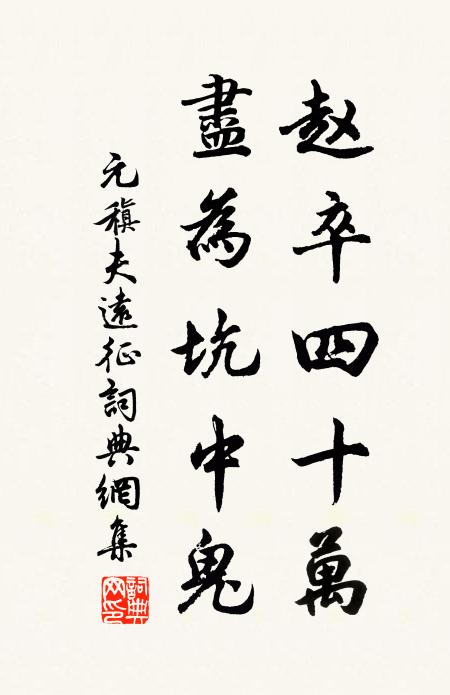 赵卒四十萬
盡為坑中鬼
元稹夫遠征詞典網集
詞典
网印